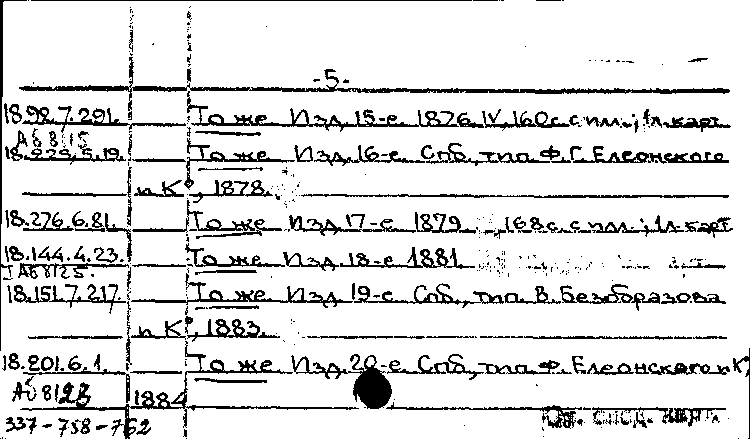 -5-
18.92.7.291. То же Изд. 15-е. 1876. IV, 160с. с илл.; 1л. карт.
Аб 8115
18.229.5.19. То же Изд. 16-е. Спб., тип. Ф.Г. Елеонского
и К°, 1878.
18.276.6.81. То же Изд. 17-е 1879 168с. с илл.; 1л. карт
18.144.4.23. То же Изд. 18-е 1881.
Аб 8125.
18.151.7.217. То же. Изд. 19-е. Спб., тип. В. Безобразова
и К°, 1883.
18.201.6.1. То же Изд. 20-е. Спб., тип. Ф. Елеонского и К°,
Аб 8123 1884
337-758-762